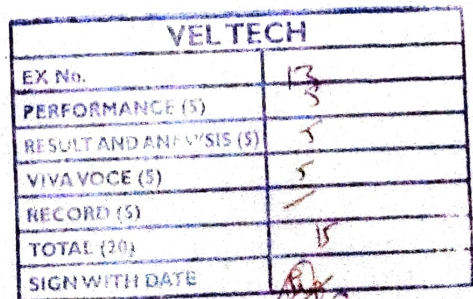 VEL TECH
EX No. 13
PERFORMANCE (5) 5
RESULT AND ANALYSIS (5) 5
VIVA VOCE (5) 5
RECORD (5) /
TOTAL (20) 15
SIGN WITH DATE